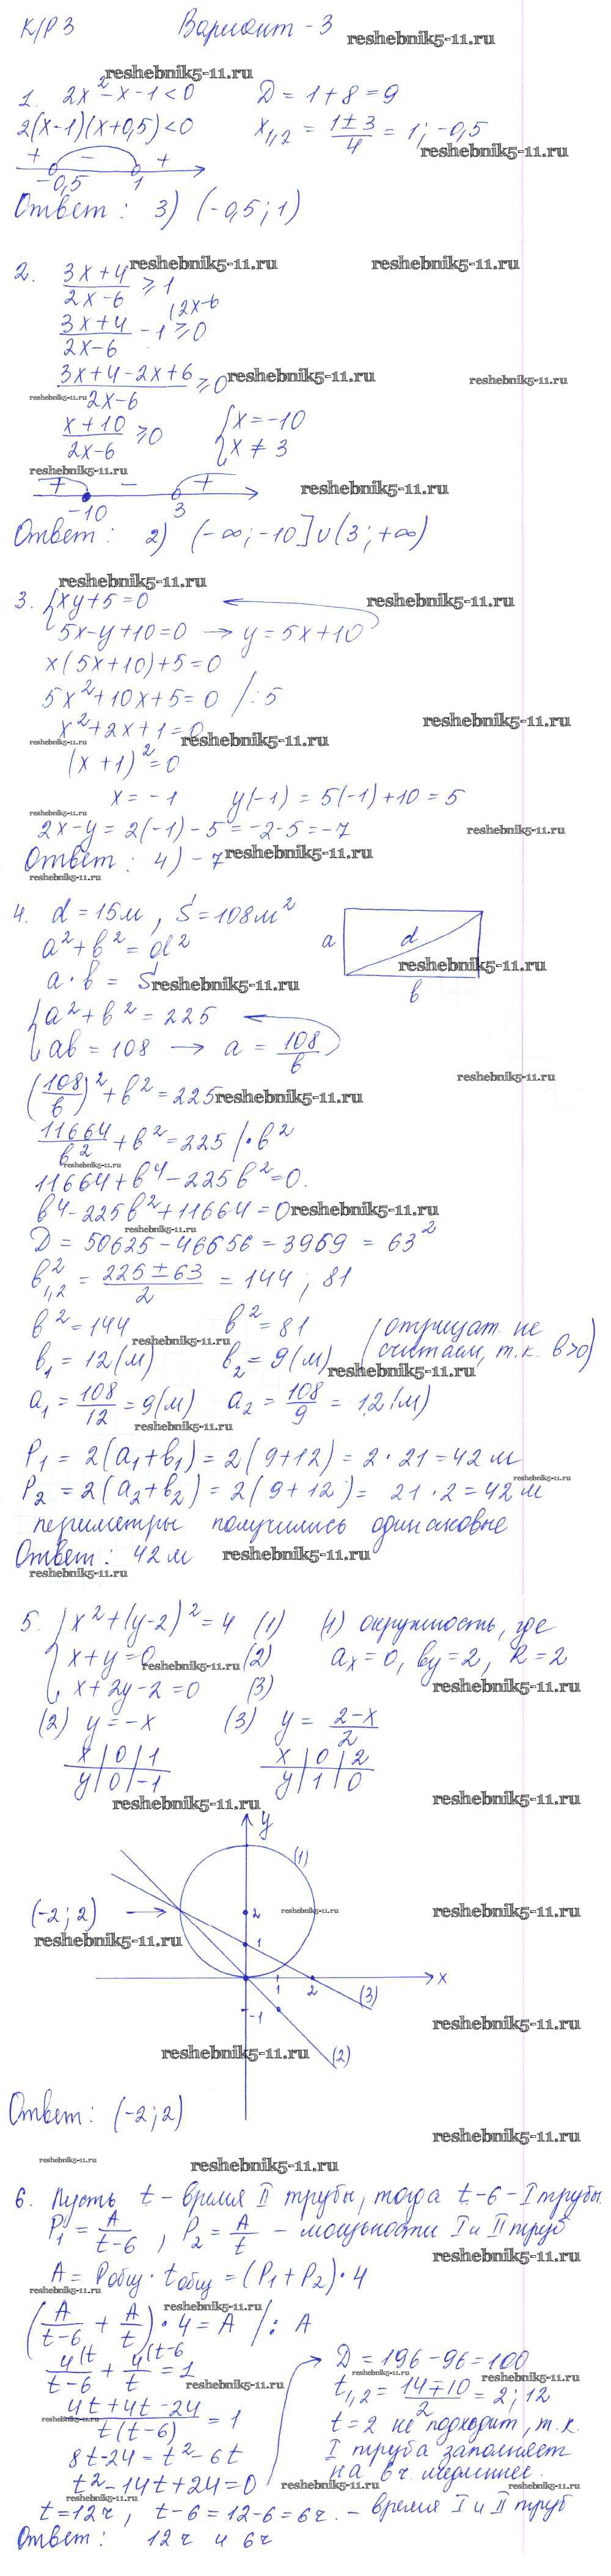 К/Р 3 Вариант - 3
reshebnik5-11.ru
reshebnik5-11.ru
1. 2x² - x - 1 < 0 D = 1 + 8 = 9
2(x-1)(x+0,5) < 0 x₁,₂ = (1±3)/4 = 1; -0,5
reshebnik5-11.ru
+ - +
-0,5 1
Ответ: 3) (-0,5; 1)
reshebnik5-11.ru reshebnik5-11.ru
2. (3x+4)/(2x-6) ≥ 1
(3x+4)/(2x-6) - 1 ≥ 0 (2x-6
(3x+4-2x+6)/(2x-6) ≥ 0
reshebnik5-11.ru reshebnik5-11.ru
reshebnik5-11.ru
(x+10)/(2x-6) ≥ 0 { x = -10
x ≠ 3
reshebnik5-11.ru
+ - +
reshebnik5-11.ru
-10 3
Ответ: 2) (-∞; -10] ∪ (3; +∞)
reshebnik5-11.ru
3. { xy + 5 = 0
reshebnik5-11.ru
5x - y + 10 = 0 → y = 5x + 10
x(5x+10) + 5 = 0
5x² + 10x + 5 = 0 /: 5
reshebnik5-11.ru
x² + 2x + 1 = 0
reshebnik5-11.ru reshebnik5-11.ru
(x+1)² = 0
x = -1 y(-1) = 5(-1) + 10 = 5
reshebnik5-11.ru
2x - y = 2(-1) - 5 = -2 - 5 = -7
reshebnik5-11.ru
Ответ: 4) -7
reshebnik5-11.ru
reshebnik5-11.ru
4. d = 15м, S = 108м²
a² + b² = d² a d
reshebnik5-11.ru
a · b = S b
reshebnik5-11.ru
{ a² + b² = 225
ab = 108 → a = 108/b
reshebnik5-11.ru
(108/b)² + b² = 225
reshebnik5-11.ru
11664/b² + b² = 225 | · b²
reshebnik5-11.ru
11664 + b⁴ - 225b² = 0.
b⁴ - 225b² + 11664 = 0
reshebnik5-11.ru
reshebnik5-11.ru
D = 50625 - 46656 = 3969 = 63²
b²₁,₂ = (225±63)/2 = 144; 81
b² = 144 b² = 81 (отрицат. не
reshebnik5-11.ru
b₁ = 12(м) b₂ = 9(м) считаем, т.к. b>0)
reshebnik5-11.ru
a₁ = 108/12 = 9(м) a₂ = 108/9 = 12(м)
reshebnik5-11.ru
P₁ = 2(a₁+b₁) = 2(9+12) = 2 · 21 = 42м
reshebnik5-11.ru
P₂ = 2(a₂+b₂) = 2(9+12) = 21 · 2 = 42м
периметры получились одинаковые
Ответ: 42м
reshebnik5-11.ru
reshebnik5-11.ru
5. { x² + (y-2)² = 4 (1) (1) окружность, где
x + y = 0 (2) aₓ = 0, bᵧ = 2, R = 2
reshebnik5-11.ru
x + 2y - 2 = 0 (3)
reshebnik5-11.ru
(2) y = -x (3) y = (2-x)/2
x | 0 | 1 x | 0 | 2
y | 0 | -1 y | 1 | 0
reshebnik5-11.ru reshebnik5-11.ru
y
(1)
(-2; 2) → 2
reshebnik5-11.ru
reshebnik5-11.ru
reshebnik5-11.ru
1
x
1 2 (3)
-1
reshebnik5-11.ru
reshebnik5-11.ru
(2)
Ответ: (-2; 2)
reshebnik5-11.ru
reshebnik5-11.ru
reshebnik5-11.ru
6. Пусть t - время II трубы, тогда t-6 - I трубы.
P₁ = A/(t-6), P₂ = A/t - мощности I и II труб
reshebnik5-11.ru
A = Pобщ · tобщ = (P₁+P₂) · 4
reshebnik5-11.ru
reshebnik5-11.ru
(A/(t-6) + A/t) · 4 = A /: A
4(t/(t-6) + 4(t-6/t = 1 D = 196 - 96 = 100
reshebnik5-11.ru reshebnik5-11.ru
reshebnik5-11.ru
(4t+4t-24)/(t(t-6)) = 1 t₁,₂ = (14∓10)/2 = 2; 12
reshebnik5-11.ru
t = 2 не подходит, т.к.
8t - 24 = t² - 6t I труба заполняет
на 6ч. медленнее.
t² - 14t + 24 = 0
reshebnik5-11.ru reshebnik5-11.ru
reshebnik5-11.ru
t = 12ч, t-6 = 12-6 = 6ч. - время I и II труб
Ответ: 12ч и 6ч